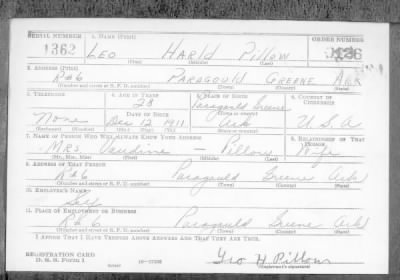 SERIAL NUMBER 1. NAME (Print) ORDER NUMBER
1362 LEO HARLD PILLOW
(First) (Middle) (Last)
2. ADDRESS (Print)
R#6 PARAGOULD GREENE ARK
(Number and street or R. F. D. number) (Town) (County) (State)
3. TELEPHONE 4. AGE IN YEARS 5. PLACE OF BIRTH 6. COUNTRY OF
CITIZENSHIP
28 Paragould Greene
None DATE OF BIRTH (Town or county)
Dec 12 1911 Ark U.S.A
(Exchange) (Number) (Mo.) (Day) (Yr.) (State or country)
7. NAME OF PERSON WHO WILL ALWAYS KNOW YOUR ADDRESS 8. RELATIONSHIP OF THAT
PERSON
Mrs. — Pillow Wife
(Mr., Mrs., Miss) (First) (Middle) (Last)
9. ADDRESS OF THAT PERSON
R#6 Paragould Greene Ark
(Number and street or R. F. D. number) (Town) (County) (State)
10. EMPLOYER'S NAME
Self
11. PLACE OF EMPLOYMENT OR BUSINESS
R#6 Paragould Greene Ark
(Number and street or R. F. D. number) (Town) (County) (State)
I AFFIRM THAT I HAVE VERIFIED ABOVE ANSWERS AND THAT THEY ARE TRUE.
REGISTRATION CARD
D. S. S. Form 1 Leo H. Pillow
(Registrant's signature)